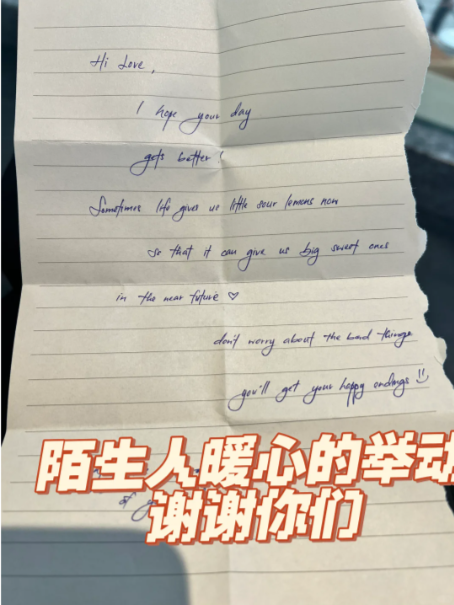 Hi Love,
I hope your day
gets better!
Sometimes life gives us little sour lemons now
so that it can give us big sweet ones
in the near future ♡
don't worry about the bad things
you'll get your happy endings
陌生人暖心的举动
谢谢你们
of